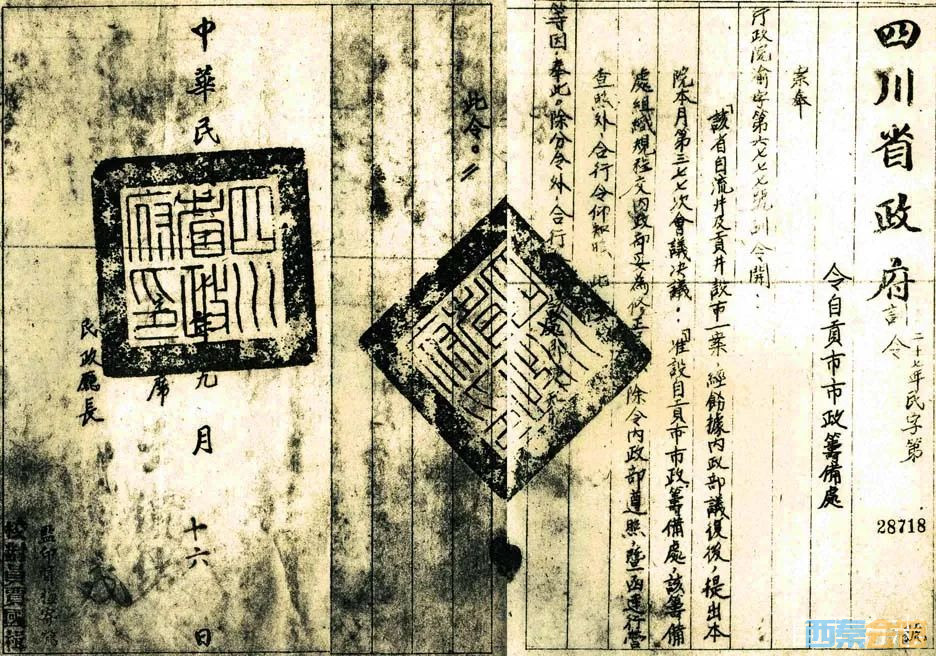 四川省政府訓令
二十七年民字第
28718
號
令自貢市市政籌備處
案奉
行政院渝字第六七七七號訓令開：
「該省自流井及貢井設市一案，經飭據內政部議復後，提出本
院本月第三七七次會議決議：『准設自貢市市政籌備處，該籌備
處組織規程交內政部
修正
除令內政部遵照，暨函達行營
查照外，合行令仰知照，此
等因，奉此。除分令外，合行
此令。
中華民
年九月十六日
席
民政廳長
監印
校對員
四川省政府印
西秦